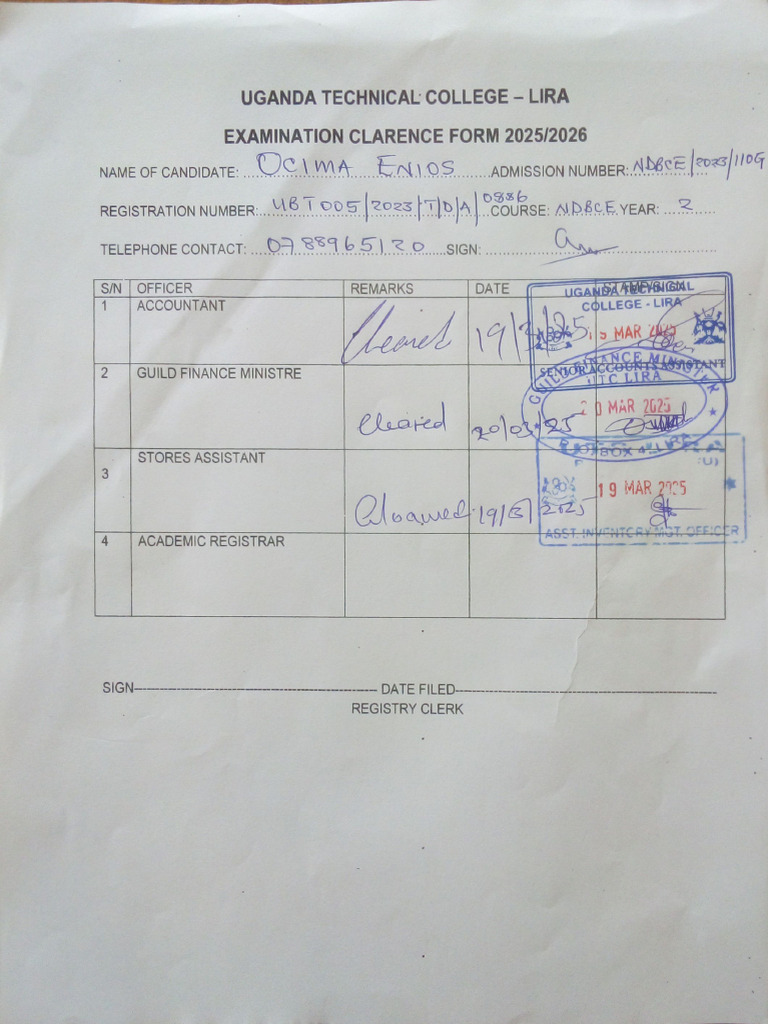 UGANDA TECHNICAL COLLEGE – LIRA
EXAMINATION CLARENCE FORM 2025/2026
NAME OF CANDIDATE: OCIMA ENIOS ADMISSION NUMBER: NDBCE/2023/110G
REGISTRATION NUMBER: UBT005/2023/T/D/A/0886 COURSE: NDBCE YEAR: 2
TELEPHONE CONTACT: 0788965120 SIGN:
S/N OFFICER REMARKS DATE STAMP/SIGN
1 ACCOUNTANT Cleared 19/3/25
UGANDA TECHNICAL
COLLEGE - LIRA
MAR 2025
SENIOR ACCOUNTS ASSISTANT
2 GUILD FINANCE MINISTRE Cleared 20/03/25
GUILD FINANCE MINISTER
UTC LIRA
20 MAR 2025
P.O. BOX 4 LIRA
3 STORES ASSISTANT Cleared 19/3/2025
19 MAR 2025
ASST. INVENTORY MGT. OFFICER
4 ACADEMIC REGISTRAR
SIGN DATE FILED
REGISTRY CLERK